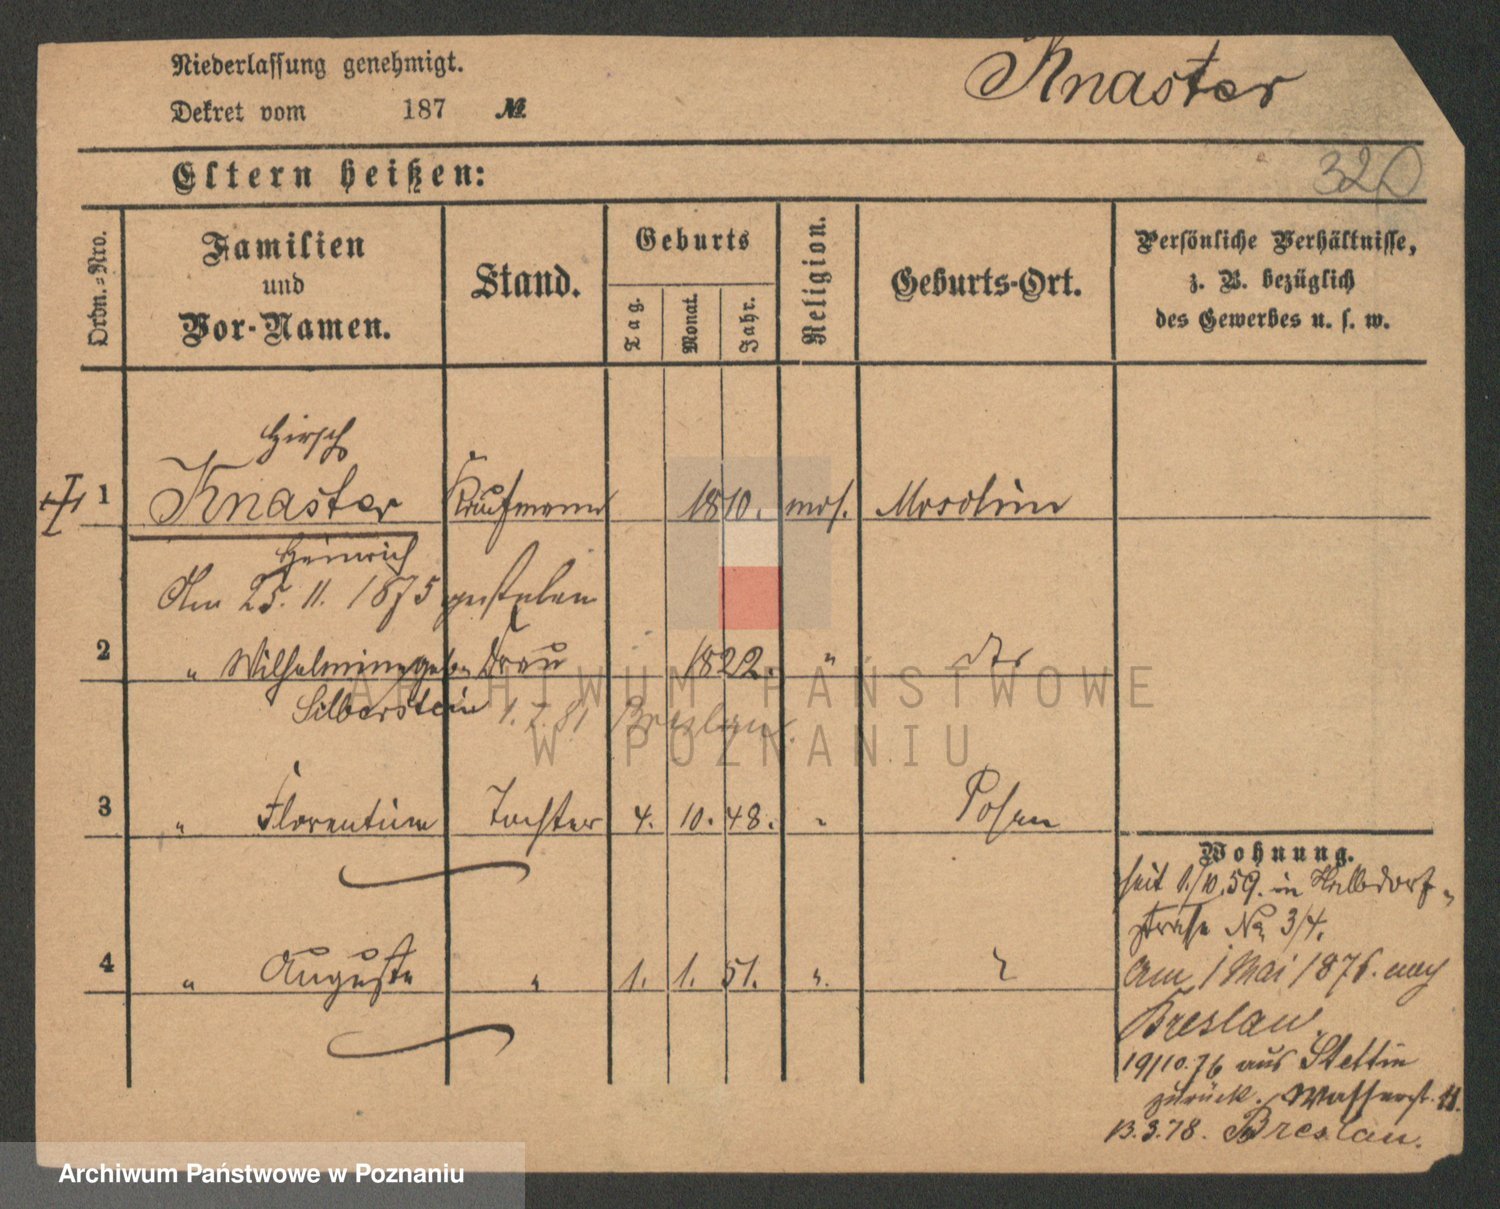 Niederlassung genehmigt.
Knaster
Dekret vom 187 №
Eltern heißen:
320
Ordn.=Nro.
Familien und Vor-Namen.
Stand.
Geburts
Tag.
Monat.
Jahr.
Religion.
Geburts-Ort.
Persönliche Verhältnisse,
z. B. bezüglich
des Gewerbes u. s. w.
Hirsch
1 Knaster Kaufmann 1810. mos.
Heinrich
Am 25. 11. 1875 gestorben
2 " Wilhelmine geb. Frau 1822. "
Silberstein 1. 7. 81 Breslau.
3 " Florentine Tochter 4. 10. 48. " Posen
4 " Auguste " 1. 1. 51. "
Wohnung.
seit 1./10. 59. in Halbdorf-
straße No 3/4.
Am 1 Mai 1876. nach
Breslau
19/10.76 aus Stettin
zurück. Wasserst. 11.
13.3.78. Breslau.
ARCHIWUM PAŃSTWOWE
W POZNANIU
Archiwum Państwowe w Poznaniu